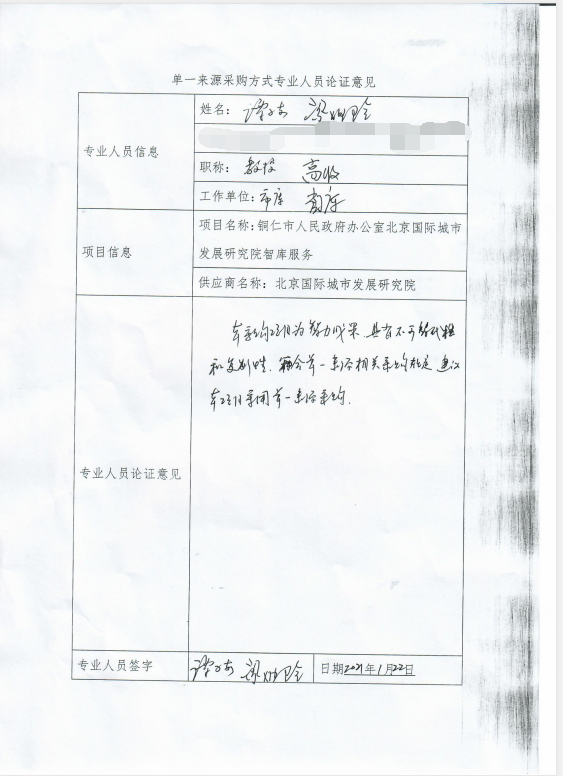 单一来源采购方式专业人员论证意见
专业人员信息
姓名：
职称：教授 高收
工作单位：
项目信息
项目名称：铜仁市人民政府办公室北京国际城市
发展研究院智库服务
供应商名称：北京国际城市发展研究院
专业人员论证意见
本采购项目为智力成果，具有不可替代性
和复制性，符合单一来源相关采购规定 建议
本项目采用单一来源采购.
专业人员签字
日期2021年1月22日